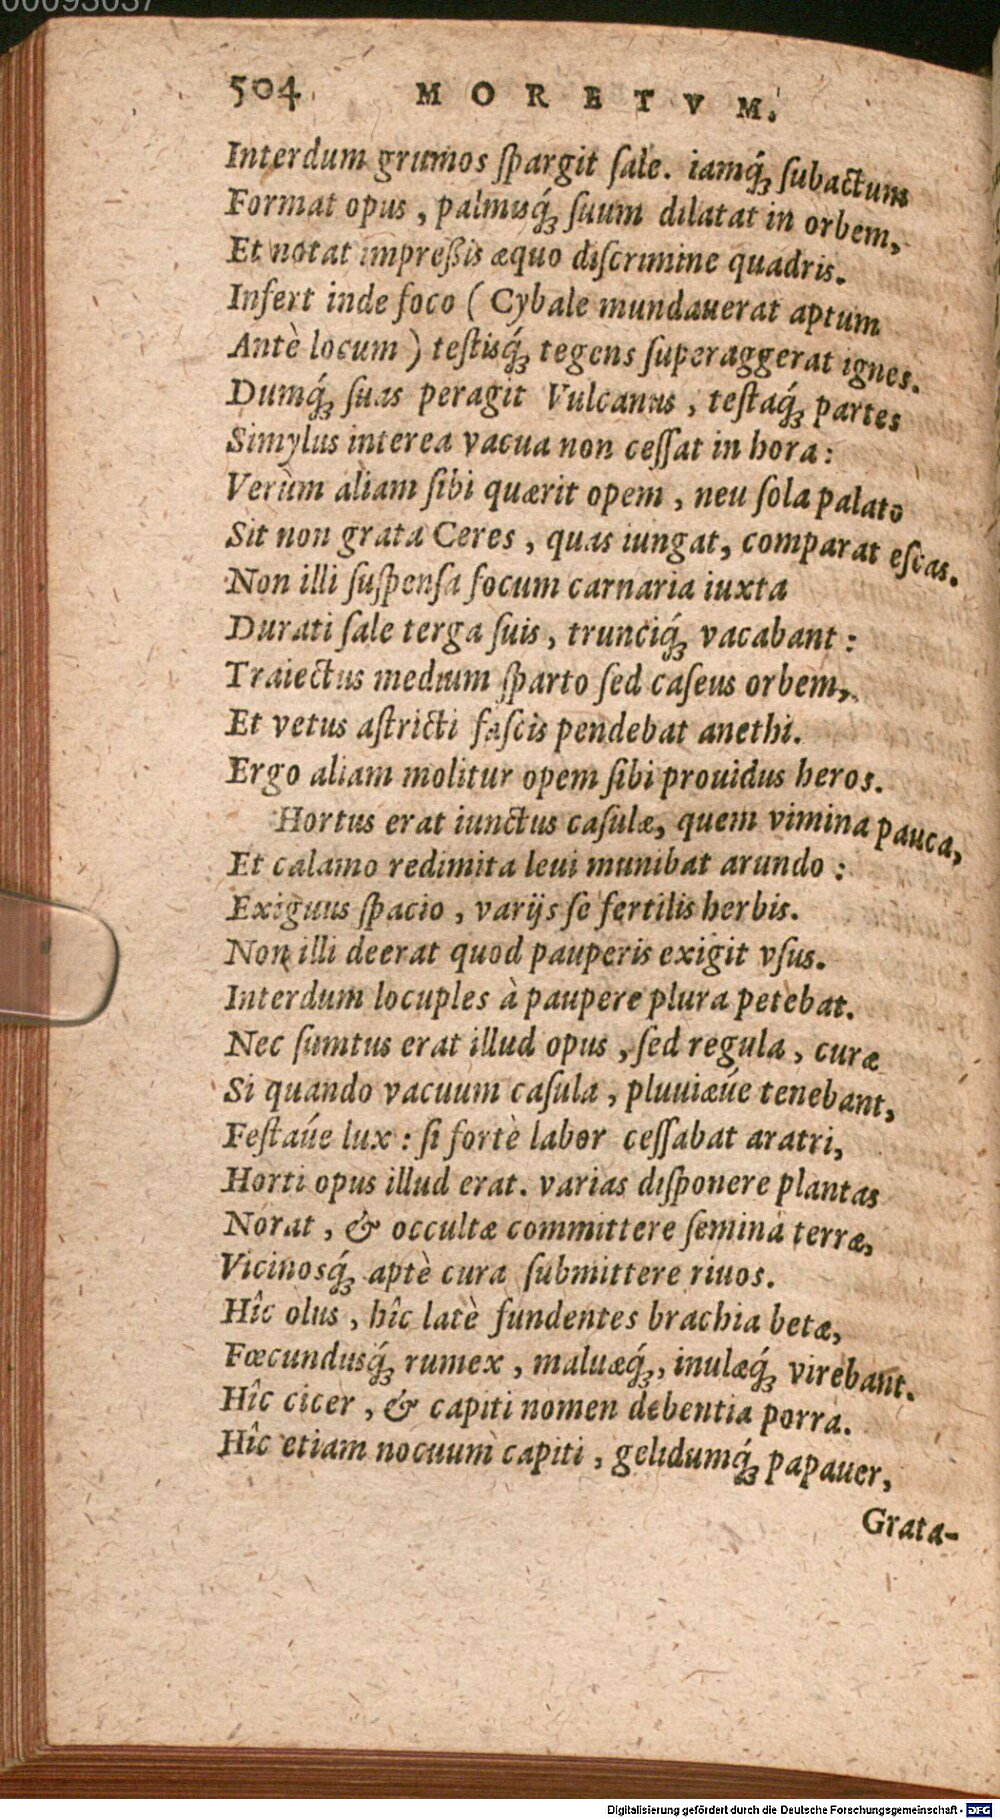 00093037
504 MORETVM.
Interdum grumos ſpargit ſale. iamq́ꝫ ſubactum
Format opus, palmisq́ꝫ ſuum dilatat in orbem,
Et notat impreßis æquo diſcrimine quadris.
Inſert inde foco (Cybale mundauerat aptum
Antè locum) teſtisq́ꝫ tegens ſuperaggerat ignes.
Dumq́ꝫ ſuas peragit Vulcanus, teſtaq́ꝫ partes
Simylus interea vacua non ceſſat in hora:
Verùm aliam ſibi quærit opem, neu ſola palato
Sit non grata Ceres, quas iungat, comparat eſcas.
Non illi ſuſpenſa focum carnaria iuxta
Durati ſale terga ſuis, trunciq́ꝫ vacabant:
Traiectus medium ſparto ſed caſeus orbem,
Et vetus aſtricti faſcis pendebat anethi.
Ergo aliam molitur opem ſibi prouidus heros.
Hortus erat iunctus caſulæ, quem vimina pauca,
Et calamo redimita leui munibat arundo:
Exiguus ſpacio, varijs ſe fertilis herbis.
Non illi deerat quod pauperis exigit vſus.
Interdum locuples à paupere plura petebat.
Nec ſumtus erat illud opus, ſed regula, curæ
Si quando vacuum caſula, pluuiæúe tenebant,
Feſtaúe lux: ſi fortè labor ceſſabat aratri,
Horti opus illud erat. varias diſponere plantas
Norat, & occultæ committere ſemina terræ,
Vicinosq́ꝫ aptè cura ſubmittere riuos.
Hîc olus, hîc latè fundentes brachia betæ,
Fœcundusq́ꝫ rumex, maluæq́ꝫ, inulæq́ꝫ virebant.
Hîc cicer, & capiti nomen debentia porra.
Hîc etiam nocuum capiti, gelidumq́ꝫ papauer,
Grata-
Digitalisierung gefördert durch die Deutsche Forschungsgemeinschaft - DFG